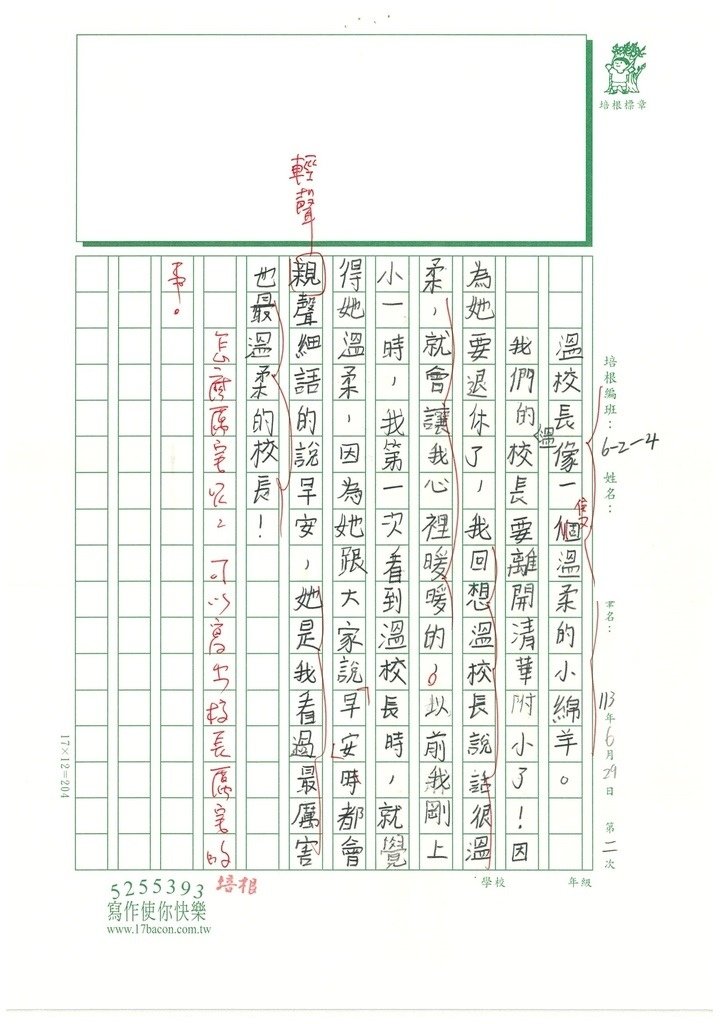 培根標章
培根編班：6-2-4 姓名：
113年6月29日 第二次
學校 年級
溫校長像一個溫柔的小綿羊。
我們的溫校長要離開清華附小了！因
為她要退休了，我回想溫校長說話很溫
柔，就會讓我心裡暖暖的。以前我剛上
小一時，我第一次看到溫校長時，就覺
得她溫柔，因為她跟大家說「早安」時都會
輕聲
親聲細語的說早安，她是我看過最厲害
也最溫柔的校長！
怎麼厲害呢？可以寫出校長厲害的
事。
培根
17×12=204
5255393
寫作使你快樂
www.17bacon.com.tw